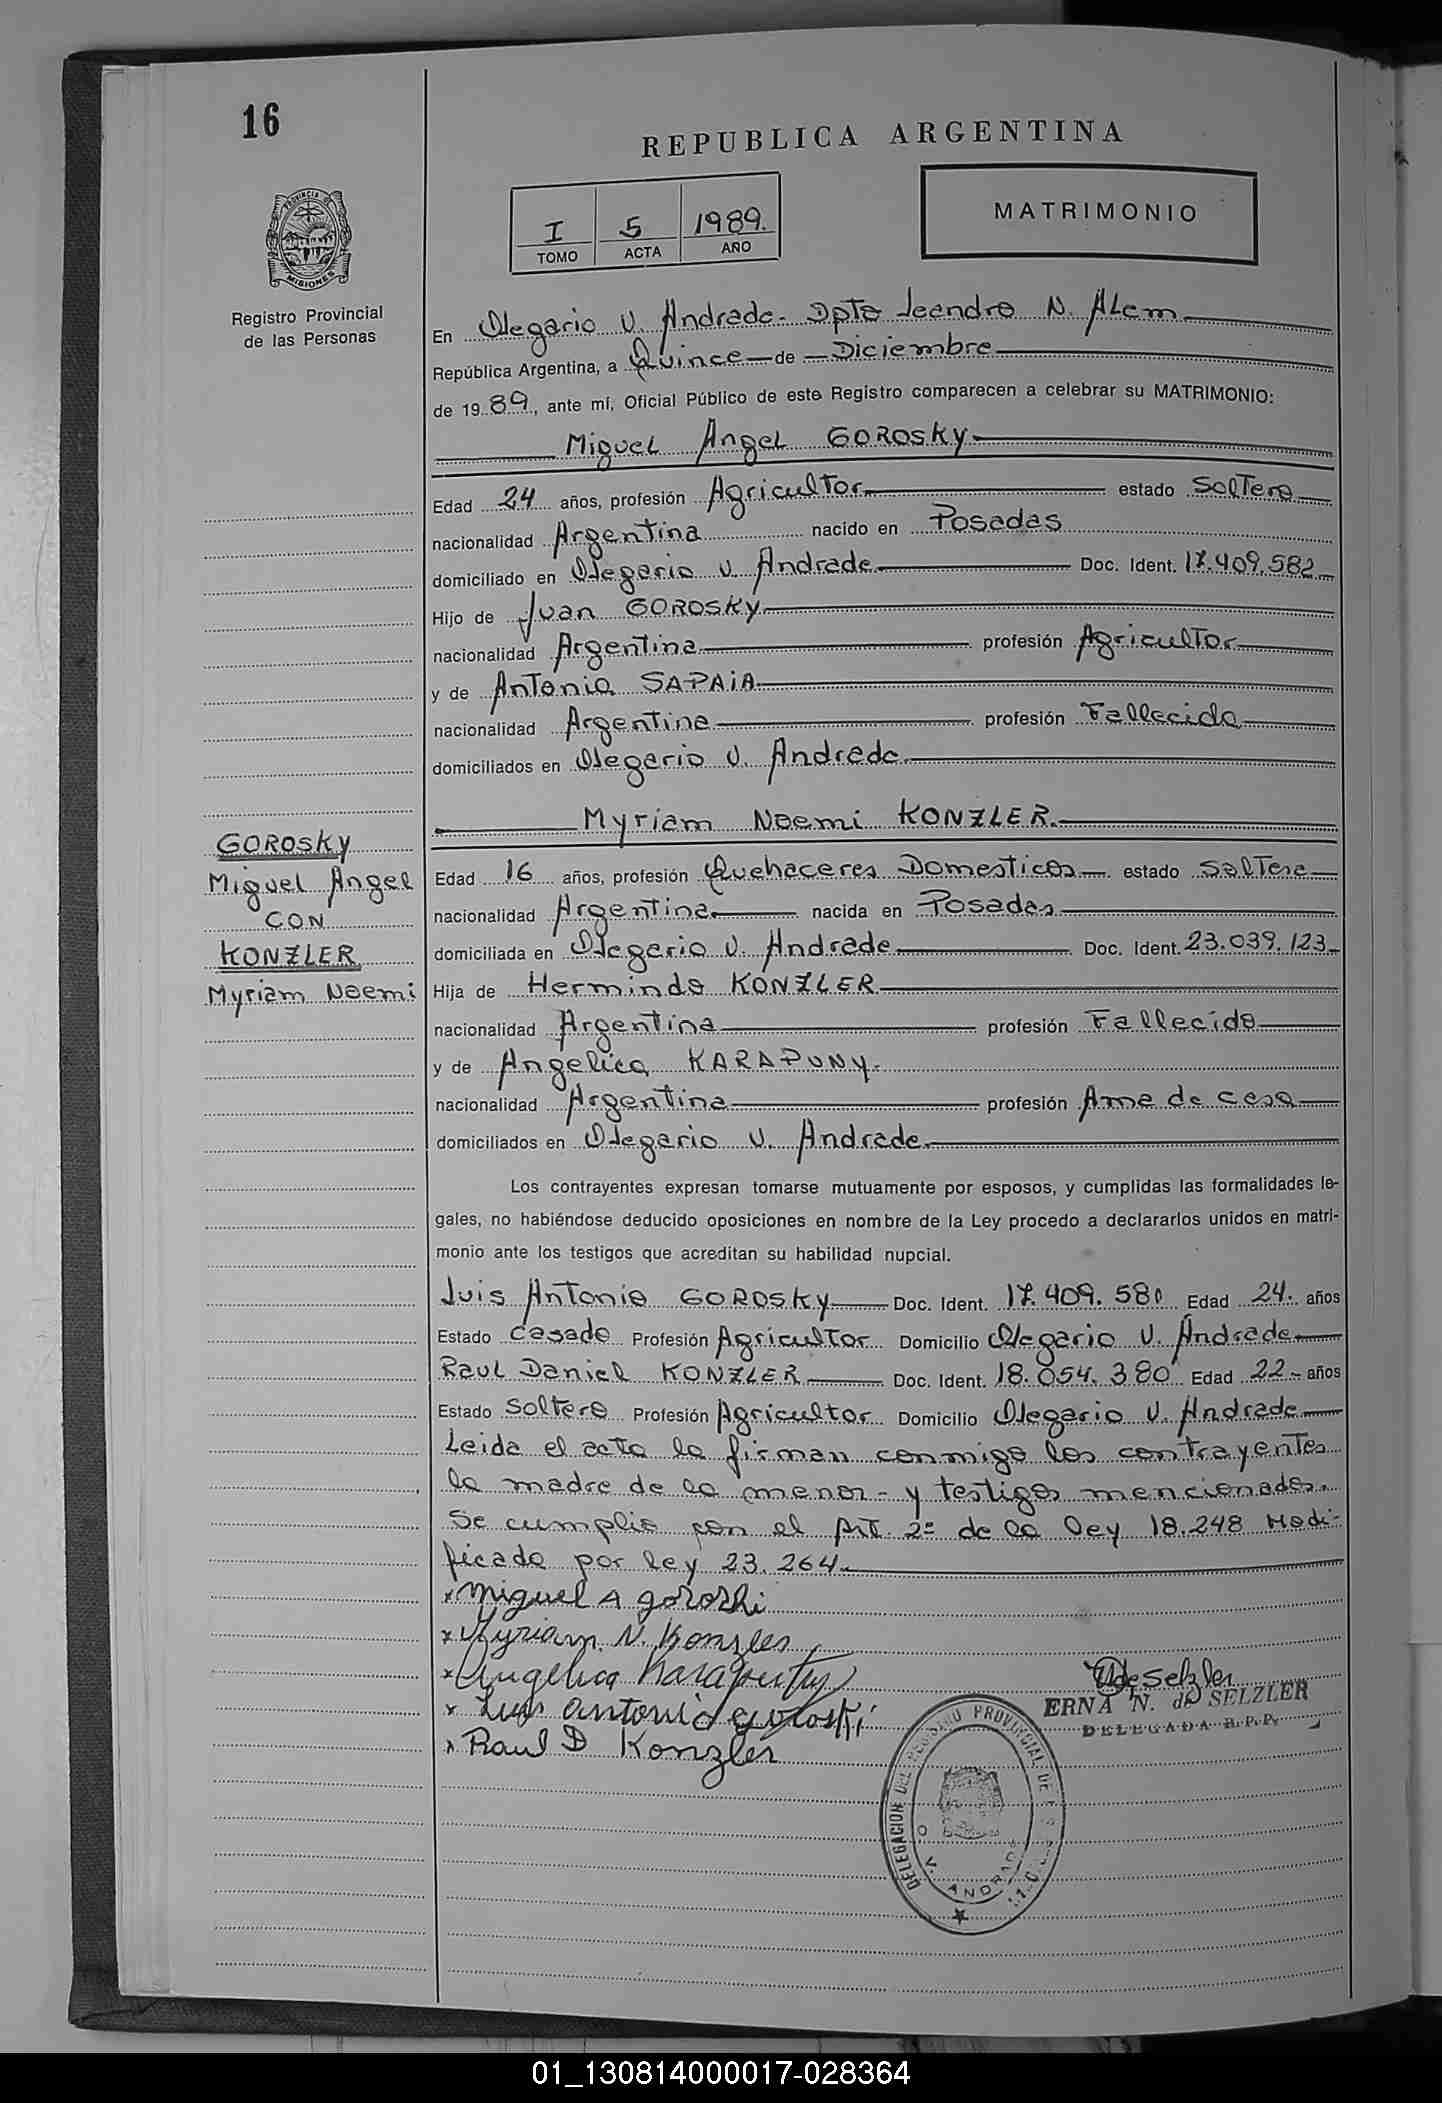 16
REPUBLICA ARGENTINA
PROVINCIA DE
MISIONES
Registro Provincial
de las Personas
I 5 1989.
TOMO ACTA AÑO
MATRIMONIO
En Olegario V. Andrade - Dpto Leandro N. Alem
República Argentina, a Quince de Diciembre
de 1989, ante mí, Oficial Público de este Registro comparecen a celebrar su MATRIMONIO:
Miguel Angel GOROSKY
Edad 24 años, profesión Agricultor estado Soltero
nacionalidad Argentina nacido en Posadas
domiciliado en Olegario V. Andrade Doc. Ident. 17.409.582
Hijo de Juan GOROSKY
nacionalidad Argentina profesión Agricultor
y de Antonia SAPAIA
nacionalidad Argentina profesión Fallecida
domiciliados en Olegario V. Andrade
Myriam Noemi KONZLER.
GOROSKY
Miguel Angel
CON
KONZLER
Myriam Noemi
Edad 16 años, profesión Quehaceres Domesticos estado Soltera
nacionalidad Argentina nacida en Posadas
domiciliada en Olegario V. Andrade Doc. Ident. 23.039.123
Hija de Hermindo KONZLER
nacionalidad Argentina profesión Fallecido
y de Angelica KARAPUNY.
nacionalidad Argentina profesión Ama de casa
domiciliados en Olegario V. Andrade
Los contrayentes expresan tomarse mutuamente por esposos, y cumplidas las formalidades le-
gales, no habiéndose deducido oposiciones en nombre de la Ley procedo a declararlos unidos en matri-
monio ante los testigos que acreditan su habilidad nupcial.
Luis Antonio GOROSKY Doc. Ident. 17.409.580 Edad 24. años
Estado Casado Profesión Agricultor Domicilio Olegario V. Andrade
Raul Daniel KONZLER Doc. Ident. 18.054.380 Edad 22 años
Estado Soltero Profesión Agricultor Domicilio Olegario V. Andrade
Leida el acta la firman conmigo los contrayentes
la madre de la menor - y testigos mencionados.
Se cumplio con el Art. 2º de la Ley 18.248 Modi-
ficado por Ley 23.264
x Miguel A goroski
x Myriam N. Konzler
x Angelica Karaputny
x Luis antonio goroski
x Raul D Konzler
de Selzler
ERNA N. de SELZLER
DELEGADA R.P.P.
DELEGACION DEL REGISTRO PROVINCIAL DE
O V. ANDRADE
01_130814000017-028364